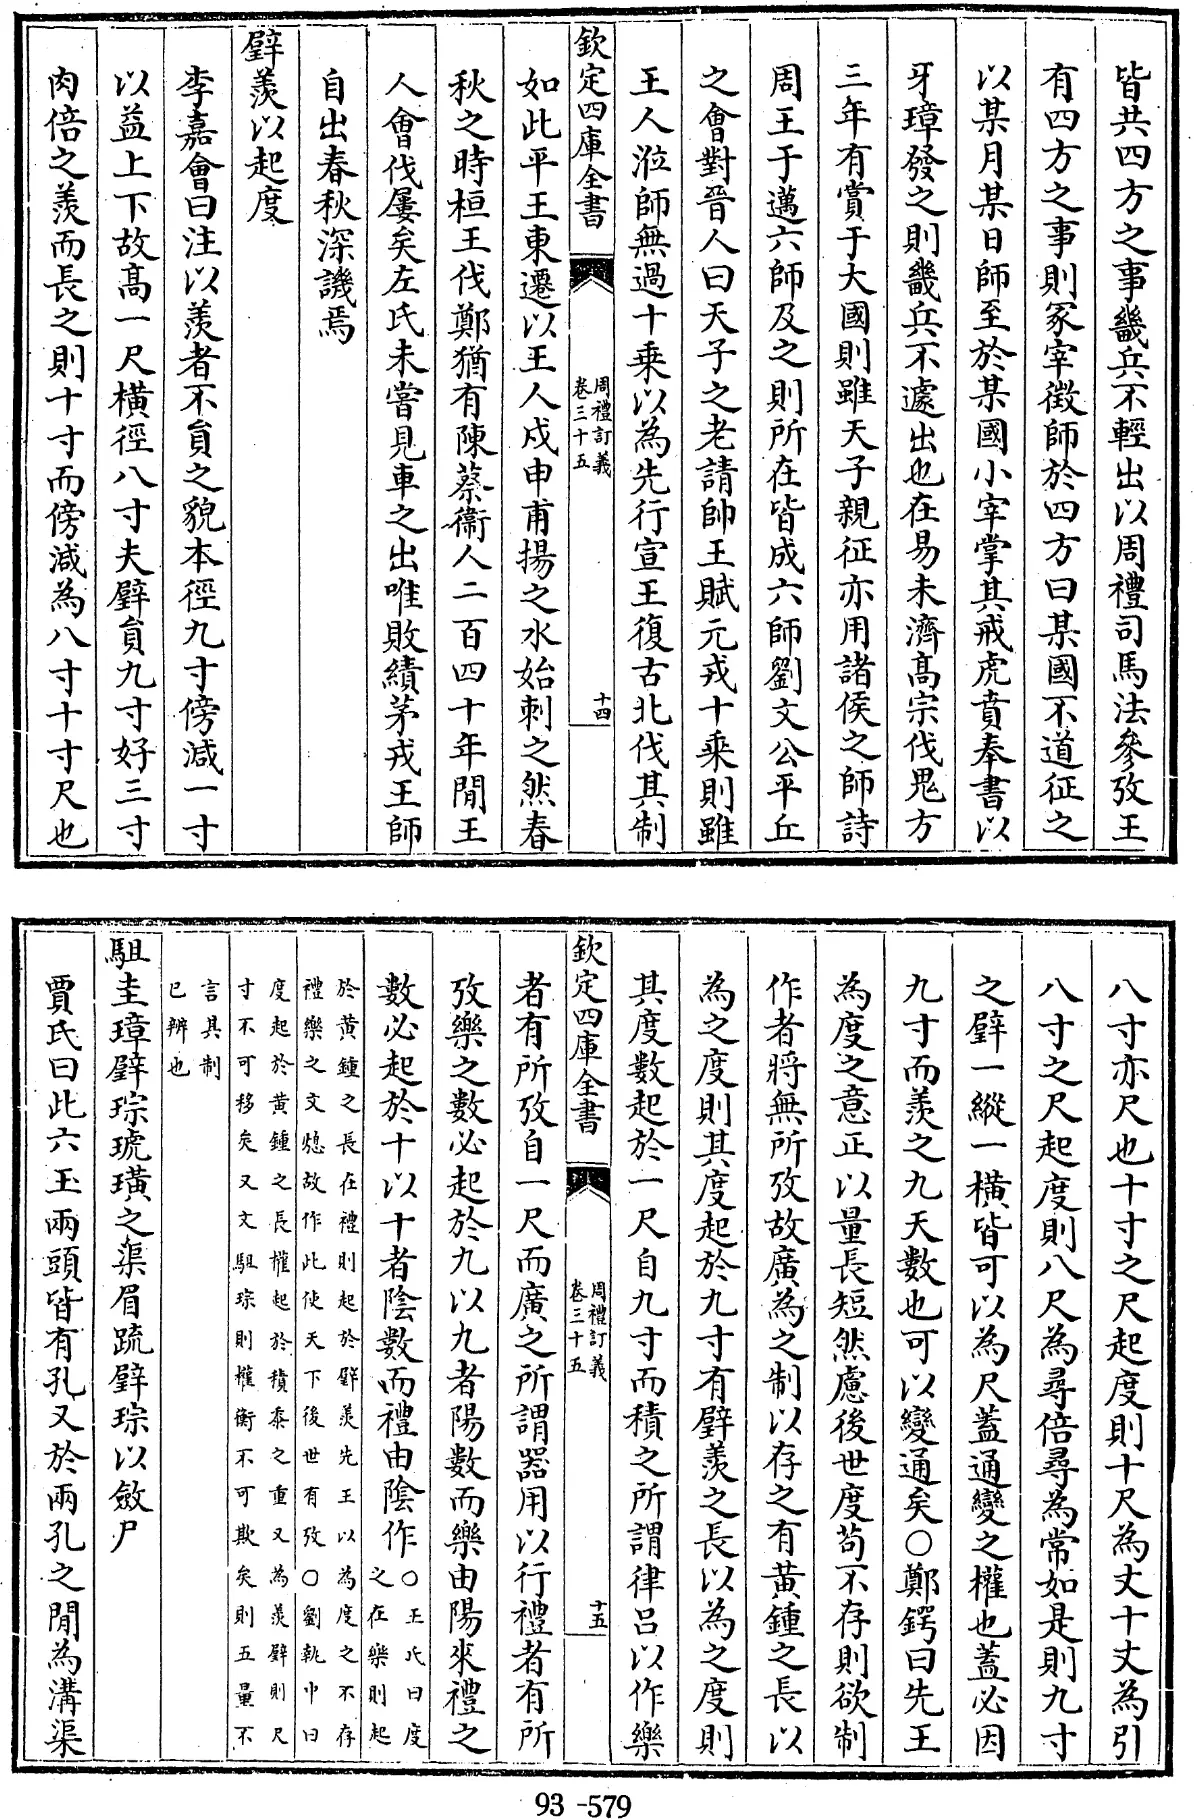 皆共四方之事畿兵不輕出以周禮司馬法參攷王
有四方之事則冢宰徵師於四方曰某國不道征之
以某月某日師至於某國小宰掌其戒虎賁奉書以
牙璋發之則畿兵不遽出也在易未濟高宗伐鬼方
三年有賞于大國則雖天子親征亦用諸侯之師詩
周王于邁六師及之則所在皆成六師劉文公平丘
之會對晉人曰天子之老請帥王賦元戎十乘則雖
王人涖師無過十乘以為先行宣王復古北伐其制
欽定四庫全書
周禮訂義
卷三十五
十四
如此平王東遷以王人戍申甫揚之水始刺之然春
秋之時桓王伐鄭猶有陳蔡衞人二百四十年閒王
人會伐屢矣左氏未嘗見車之出唯敗績茅戎王師
自出春秋深譏焉
璧羨以起度
李嘉會曰注以羨者不員之貌本徑九寸傍減一寸
以益上下故高一尺橫徑八寸夫璧員九寸好三寸
肉倍之羨而長之則十寸而傍減為八寸十寸尺也
八寸亦尺也十寸之尺起度則十尺為丈十丈為引
八寸之尺起度則八尺為尋倍尋為常如是則九寸
之璧一縱一橫皆可以為尺蓋通變之權也蓋必因
九寸而羨之九天數也可以變通矣○鄭鍔曰先王
為度之意正以量長短然慮後世度茍不存則欲制
作者將無所攷故廣為之制以存之有黃鍾之長以
為之度則其度起於九寸有璧羨之長以為之度則
其度數起於一尺自九寸而積之所謂律呂以作樂
欽定四庫全書
周禮訂義
卷三十五
十五
者有所攷自一尺而廣之所謂器用以行禮者有所
攷樂之數必起於九以九者陽數而樂由陽來禮之
數必起於十以十者陰數而禮由陰作○王氏曰度
之在樂則起
於黃鍾之長在禮則起於璧羨先王以為度之不存
禮樂之文熄故作此使天下後世有攷○劉執中曰
度起於黃鍾之長權起於積黍之重又為羨璧則尺
寸不可移矣又文駔琮則權衡不可欺矣則五量不
言其制
已辨也
駔圭璋璧琮琥璜之渠眉疏璧琮以斂尸
賈氏曰此六玉兩頭皆有孔又於兩孔之閒為溝渠
93-579